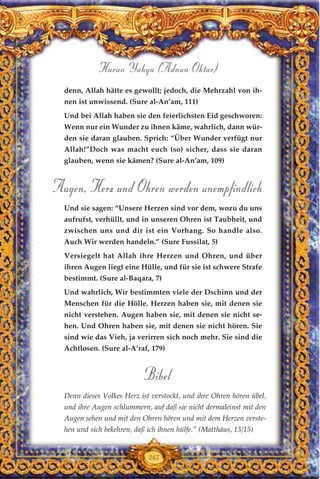 Harun Yahya (Adnan Oktar)
denn, Allah hätte es gewollt; jedoch, die Mehrzahl von ih-
nen ist unwissend. (Sure al-An’am, 111)
Und bei Allah haben sie den feierlichsten Eid geschworen:
Wenn nur ein Wunder zu ihnen käme, wahrlich, dann wür-
den sie daran glauben. Sprich: “Über Wunder verfügt nur
Allah!”Doch was macht euch (so) sicher, dass sie daran
glauben, wenn sie kämen? (Sure al-An’am, 109)
Augen, Herz und Ohren werden unempfindlich
Und sie sagen: “Unsere Herzen sind vor dem, wozu du uns
aufrufst, verhüllt, und in unseren Ohren ist Taubheit, und
zwischen uns und dir ist ein Vorhang. So handle also.
Auch Wir werden handeln.” (Sure Fussilat, 5)
Versiegelt hat Allah ihre Herzen und Ohren, und über
ihren Augen liegt eine Hülle, und für sie ist schwere Strafe
bestimmt. (Sure al-Baqara, 7)
Und wahrlich, Wir bestimmten viele der Dschinn und der
Menschen für die Hölle. Herzen haben sie, mit denen sie
nicht verstehen. Augen haben sie, mit denen sie nicht se-
hen. Und Ohren haben sie, mit denen sie nicht hören. Sie
sind wie das Vieh, ja verirren sich noch mehr. Sie sind die
Achtlosen. (Sure al-A’raf, 179)
Bibel
Denn dieses Volkes Herz ist verstockt, und ihre Ohren hören übel,
und ihre Augen schlummern, auf daß sie nicht dermaleinst mit den
Augen sehen und mit den Ohren hören und mit dem Herzen verste-
hen und sich bekehren, daß ich ihnen hülfe.” (Matthäus, 13/15)
265